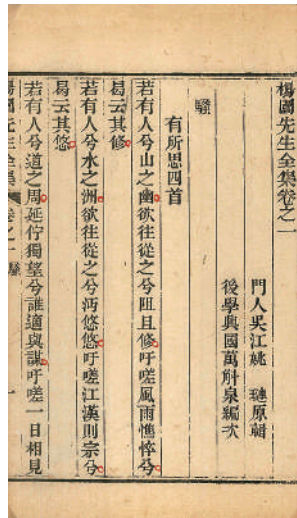 楊園先生全集卷之一
門人吳江姚　璉原輯
後學興國萬斛泉編次
騷
有所思四首
若有人兮山之幽欲往從之兮阻且修吁嗟風雨憔悴兮
曷云其修
若有人兮水之洲欲往從之兮沔悠悠吁嗟江漢則宗兮
曷云其悠
若有人兮道之周延佇獨望兮誰適與謀吁嗟一日相見
楊園先生全集 卷之一 騷 一